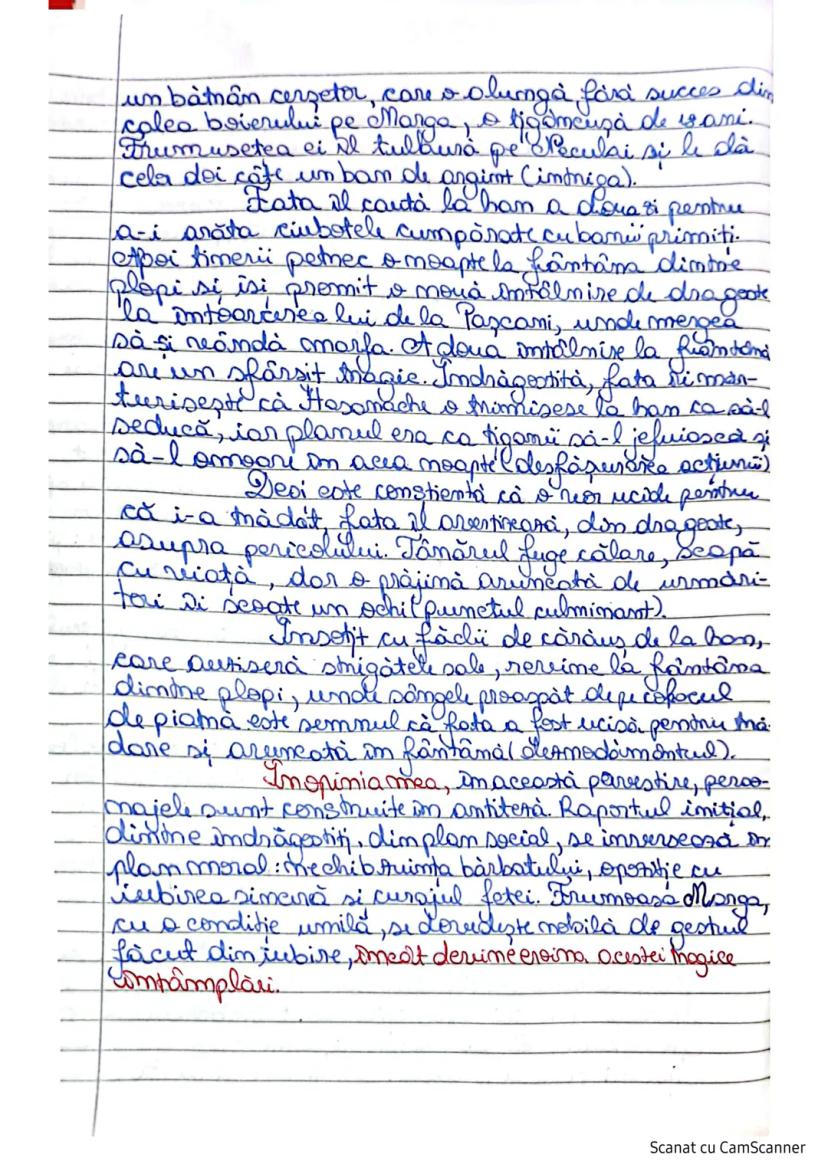 un bătrân cerșetor, care o alungă fără succes din
calea boierului pe Marga, o țigăncușă de 18 ani.
Frumusețea ei îl tulbură pe Neculai și le dă
celor doi câte un ban de argint (intriga).
Fata îl caută la han a doua zi pentru
a-i arăta ciubotele cumpărate cu banii primiți.
Apoi tinerii petrec o noapte la fântâna dintre
plopi și își promit o nouă întâlnire de dragoste
la întoarcerea lui de la Pașcani, unde mergea
să-și vândă marfa. A doua întâlnire la fântână
are un sfârșit tragic. Îndrăgostită, fata îi măr-
turisește că Hasanache o trimisese la han ca să-l
seducă, iar planul era ca țiganii să-l jefuiască și
să-l omoare în acea noapte (desfășurarea acțiunii)
Deși este conștientă că o vor ucide pentru
că i-a trădat, fata îl avertizează, din dragoste,
asupra pericolului. Tânărul fuge călare, scapă
cu viață, dar o prăjină aruncată de urmări-
tori îi scoate un ochi (punctul culminant).
Însoțit cu făclii de cărăuș de la han,
care auziseră strigătele sale, revine la fântâna
dintre plopi, unde sângele proaspăt de pe colacul
de piatră este semnul că fata a fost ucisă pentru tră-
dare și aruncată în fântână (deznodământul).
În opinia mea, în această povestire, perso-
najele sunt construite în antiteză. Raportul inițial,
dintre îndrăgostiți, din plan social, se inversează în
plan moral: nechibzuința bărbatului, opoziție cu
iubirea sinceră si curajul fetei. Frumoasa Marga,
cu o condiție umilă, se dovedește nobilă de gestul
făcut din iubire, încât devine eroina acestei tragice
întâmplări.
Scanat cu CamScanner